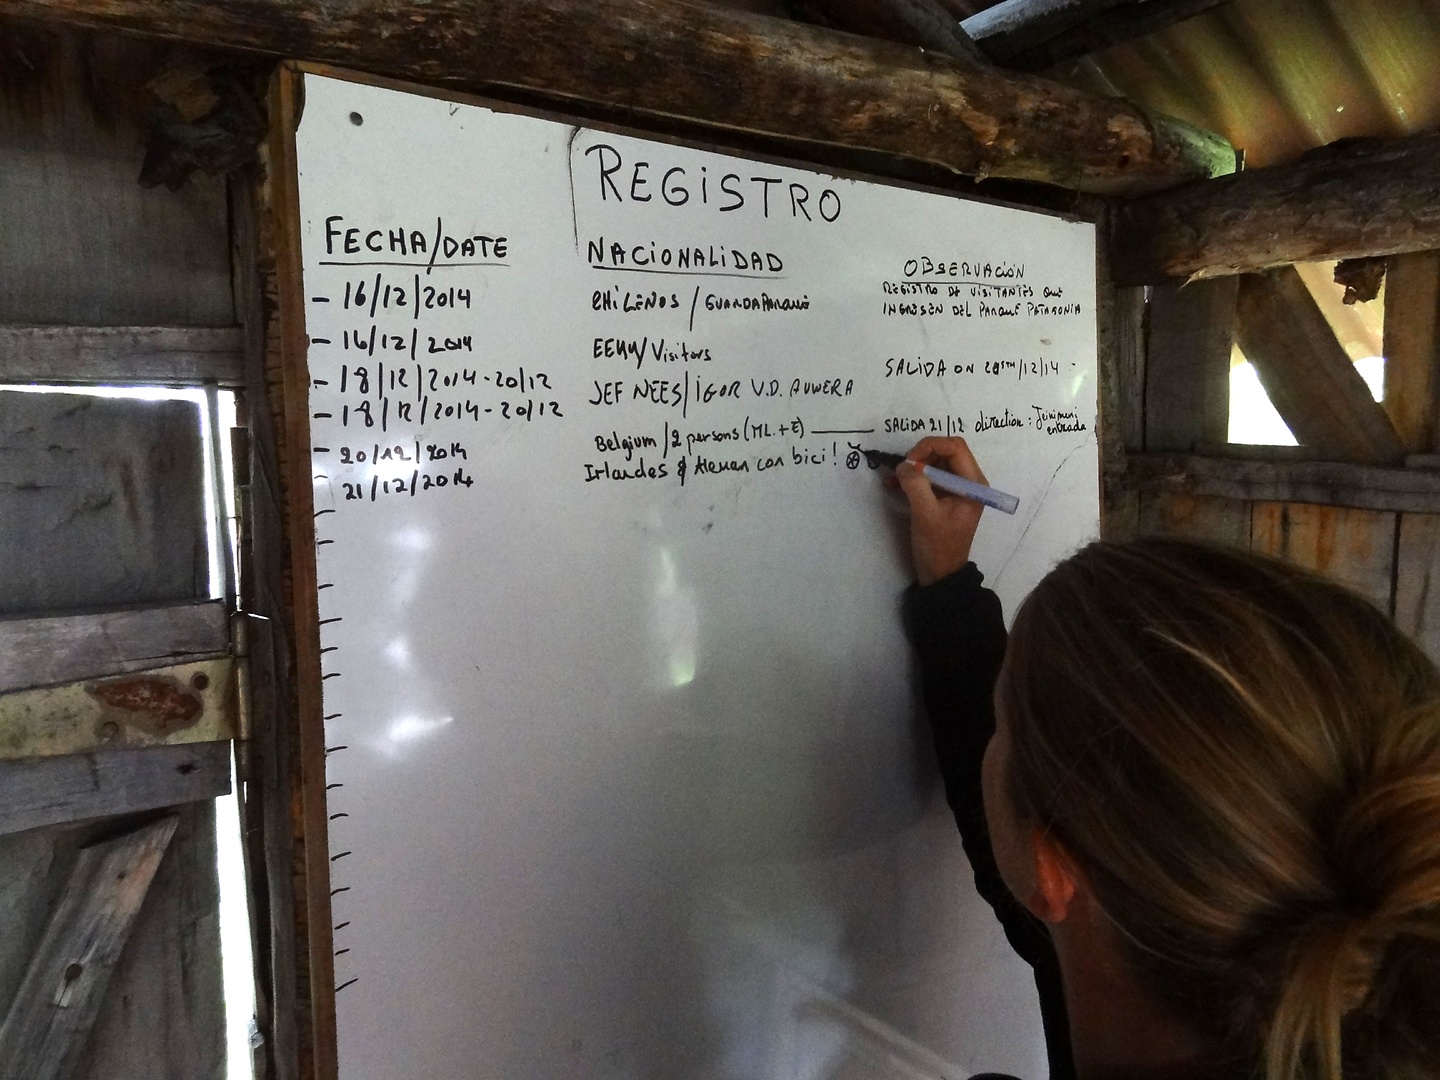 REGISTRO
FECHA/DATE NACIONALIDAD OBSERVACIÓN
- 16/12/2014 CHILENOS / GUARDAPARQUE REGISTRO DE VISITANTES QUE
INGRESEN DEL PARQUE PATAGONIA
- 16/12/2014 EEUU/Visitors
- 18/12/2014-20/12 JEF NEES/IGOR V.D. AUWERA SALIDA ON 20STH/12/14 -
- 18/12/2014-20/12
- 20/12/2014 Belgium/2 persons (ML.+E) SALIDA 21/12 direction: Jeinimeni
entrada
- 21/12/2014 Irlandes & Aleman con bici!